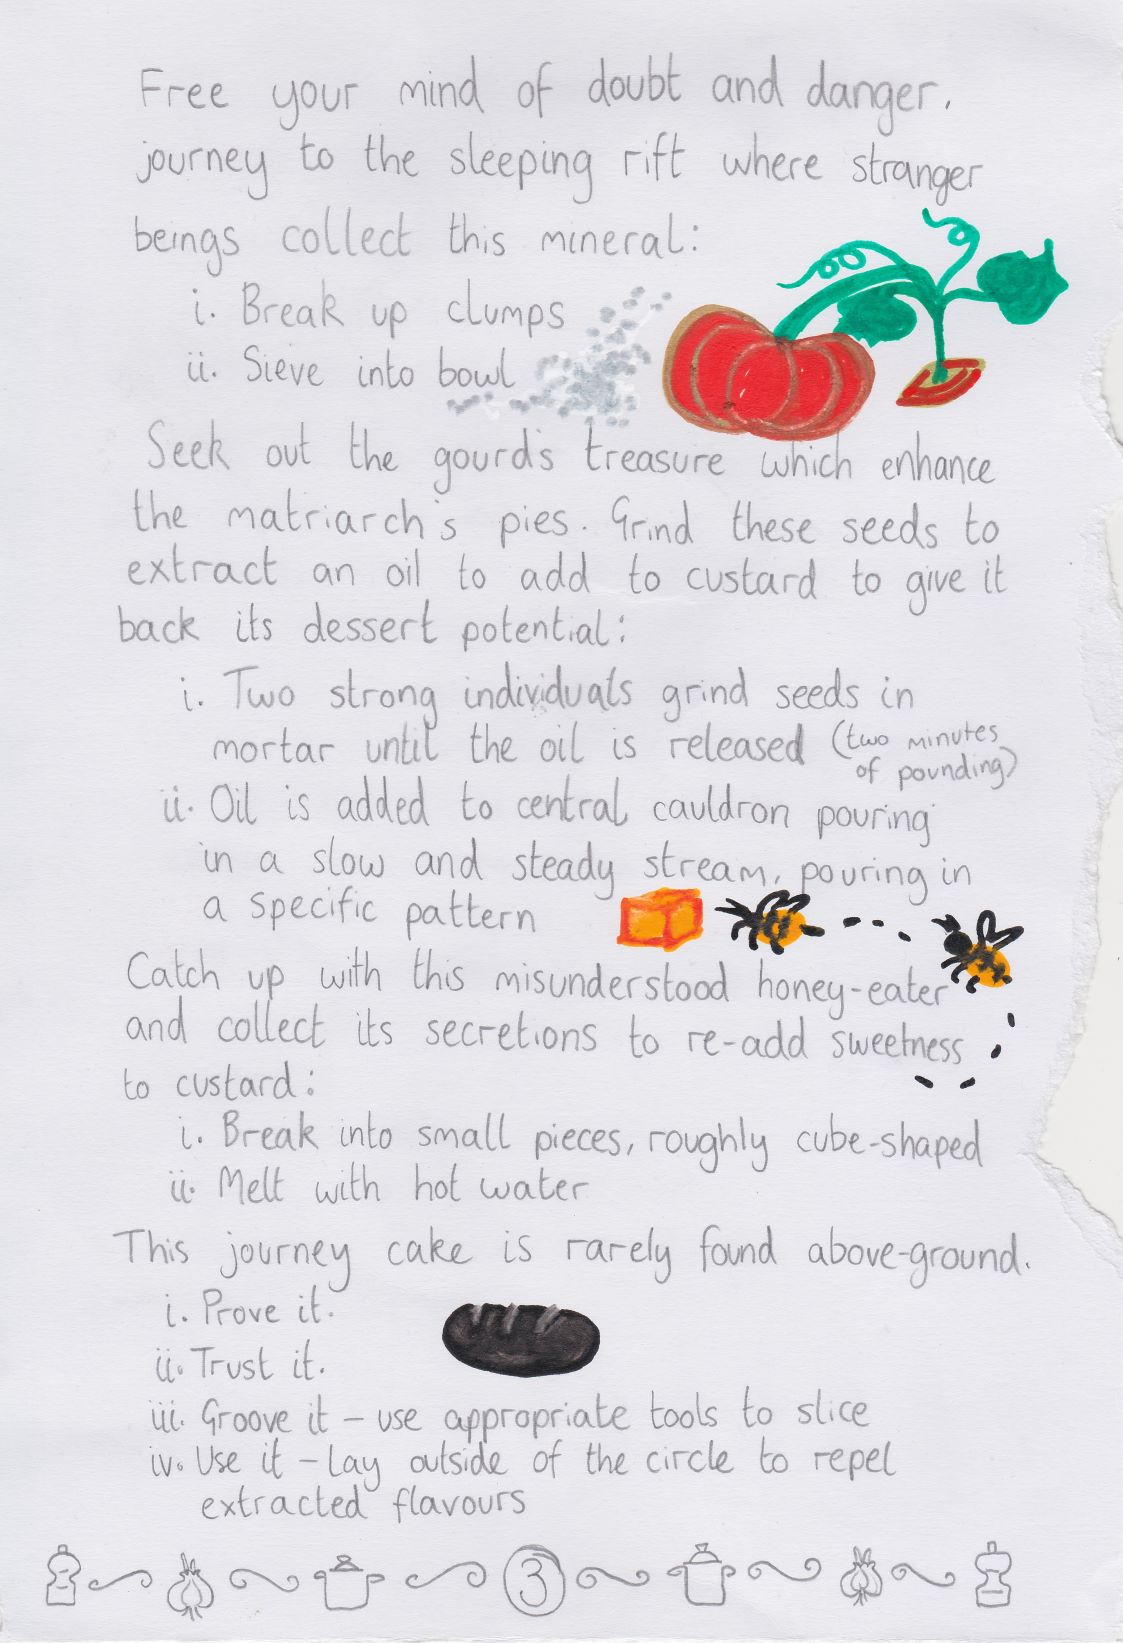 Free your mind of doubt and danger,
journey to the sleeping rift where stranger
beings collect this mineral:
i. Break up clumps
ii. Sieve into bowl
Seek out the gourd's treasure which enhance
the matriarch's pies. Grind these seeds to
extract an oil to add to custard to give it
back its dessert potential:
i. Two strong individuals grind seeds in
mortar until the oil is released (two minutes
of pounding)
ii. Oil is added to central cauldron pouring
in a slow and steady stream, pouring in
a specific pattern
Catch up with this misunderstood honey-eater
and collect its secretions to re-add sweetness
to custard:
i. Break into small pieces, roughly cube-shaped
ii. Melt with hot water
This journey cake is rarely found above-ground.
i. Prove it.
ii. Trust it.
iii. Groove it – use appropriate tools to slice
iv. Use it – lay outside of the circle to repel
extracted flavours
3